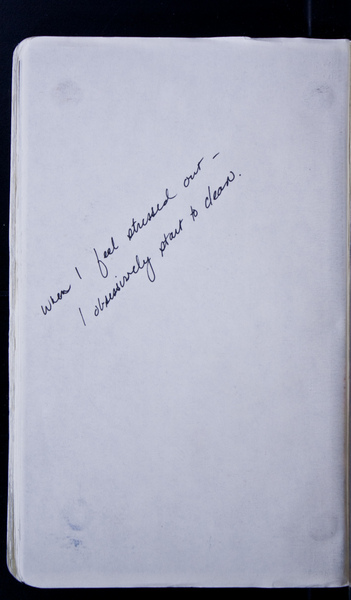 when I feel stressed out –
I obsessively start to clean.